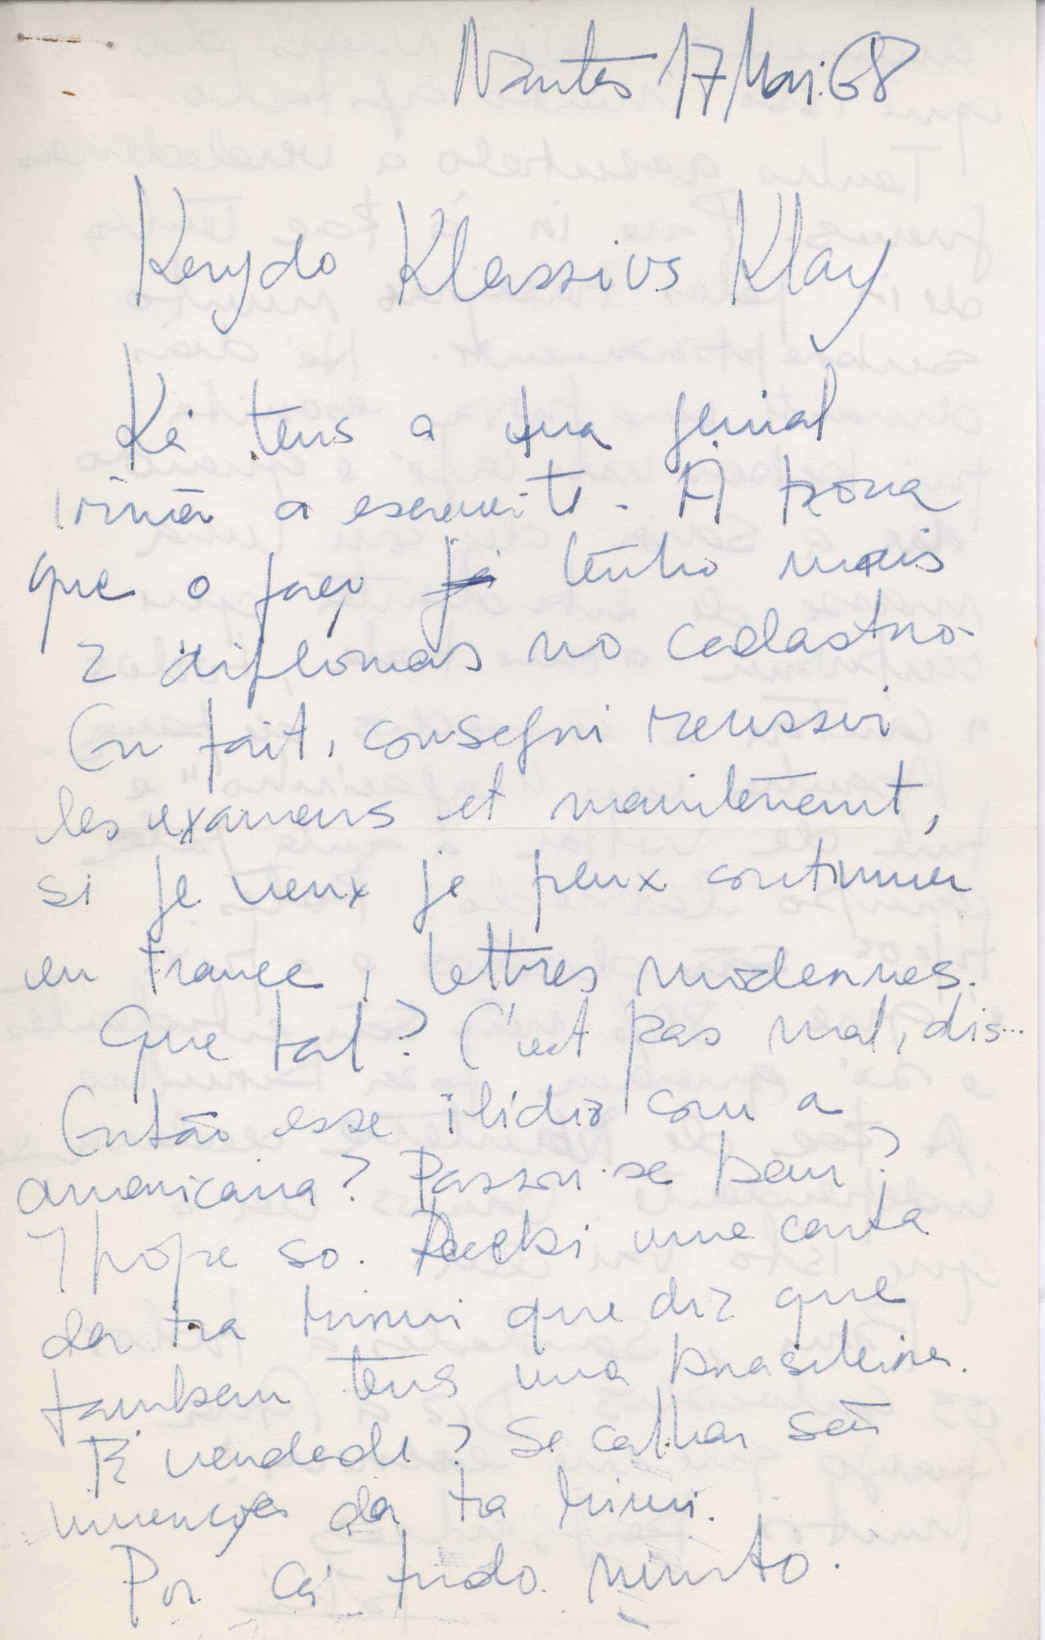 Nantes 17 Mai. 68
Kerydo Klassius Klay
Ká tens a tua genial
irmã a escrevi-te. À hora
que o faço já tenho mais
2 diplomas no cadastro.
En fait, consegui reussir
les examens et maintenant,
si je veux je peux continuer
en France, lettres modernes.
Que tal? C'est pas mal, dis...
Então esse ilidio com a
americana? Passou-se bem?
I hope so. Recebi uma carta
da tia Mimi que diz que
tambem tens uma brasileira.
É verdade? Se calhar são
invenções da tia Mimi.
Por cá tudo muito.